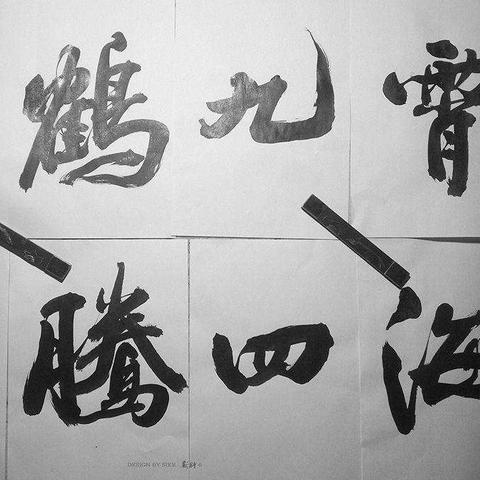 鶴九霄
騰四海
DESIGN BY SIKE